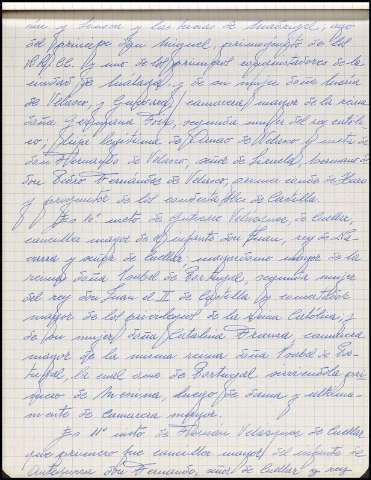 y las
del príncipe don Miguel, primogénito de los
RR. CC. y uno de los primeros conquistadores de la
ciudad de Málaga, y de su mujer doña María
de Velasco, y Guevara, camarera mayor de la reina
doña Germana Foix, segunda mujer del rey católi-
co, hija legítima de Arnao de Velasco y nieta de
don Hernando de Velasco, señor de Siruela, hermano de
don Pedro Fernández de Velasco, primer conde de Haro
y progenitor de los condestables de Castilla.
Es 3º nieto de Gutierre Velázquez de Cuéllar,
canciller mayor del infante don Juan, rey de Na-
varra y señor de Cuéllar, mayordomo mayor de la
reina doña Isabel de Portugal, segunda mujer
del rey don Juan el II de Castilla y
mayor de los privilegios de la Reina Católica, y
de su mujer doña Catalina Franca, camarera
mayor de la misma reina doña Isabel de Por-
tugal, la cual vino de Portugal sirviéndola pri-
mero de Menina, luego de dama y última-
mente de camarera mayor.
Es 4º nieto de Fernán Velázquez de Cuéllar
que primero fue canciller mayor del infante de
Antequera don Fernando, señor de Cuéllar y rey